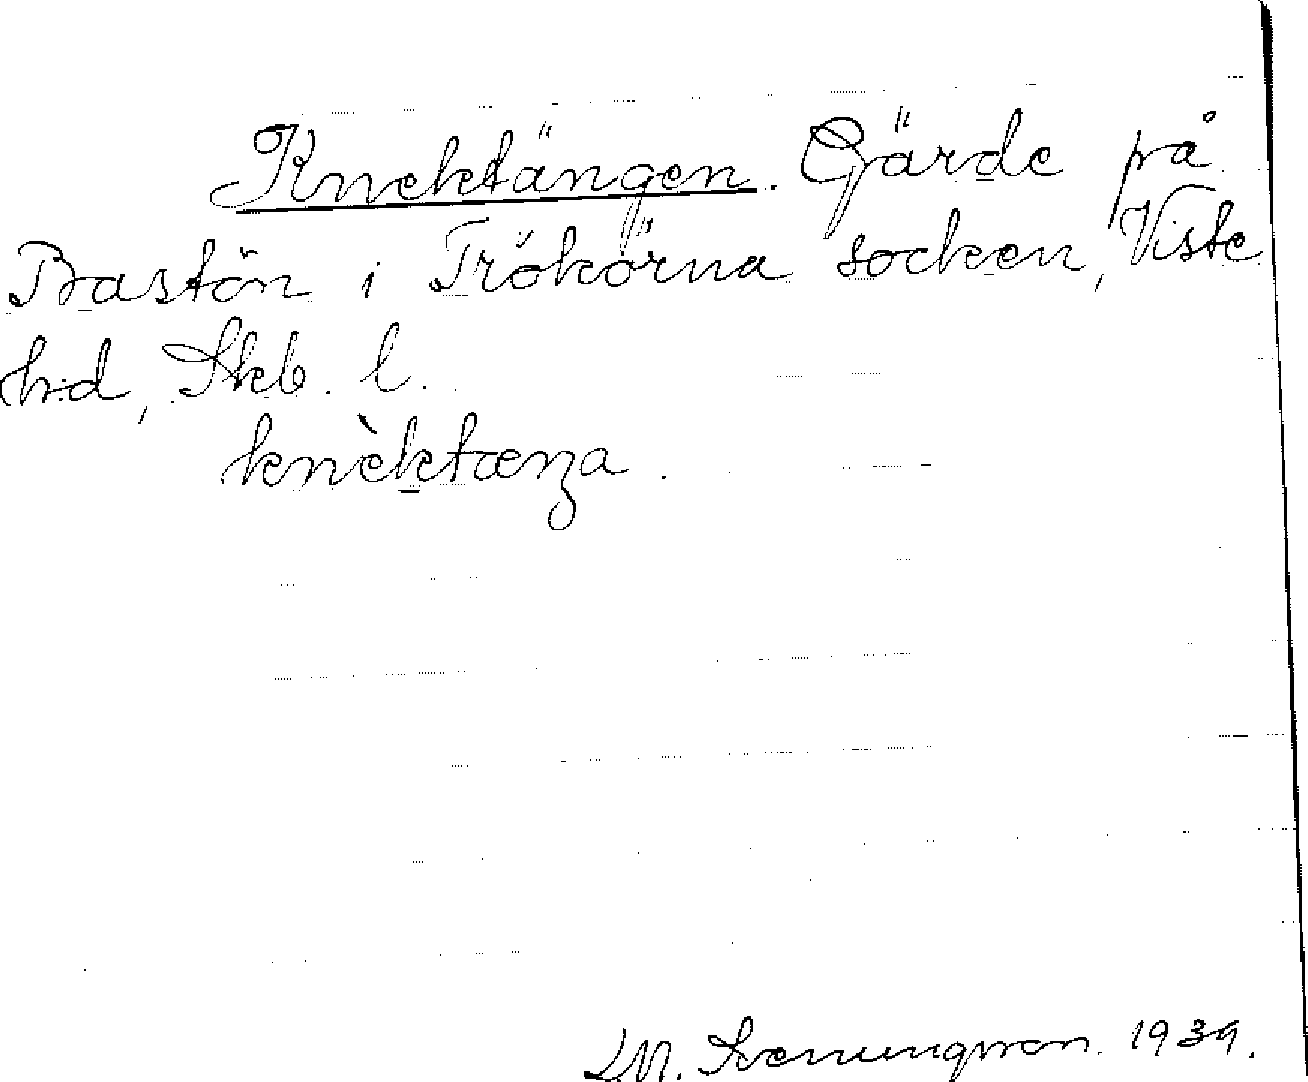 Knektängen. Gärde på
Bastön i Trökörna socken, Viste
hd, Skb. l.
knèktæŋa.
M. Svenungsson. 1939.